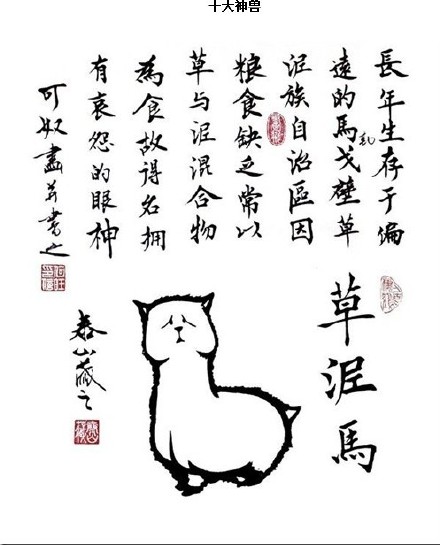 十大神兽
長年生存于偏
遠的馬乱戈壁草
泥族自治區因
粮食缺乏常以
草与泥混合物
為食故得名拥
有哀怨的眼神
可奴畫并書之
草泥馬
泰山藏之